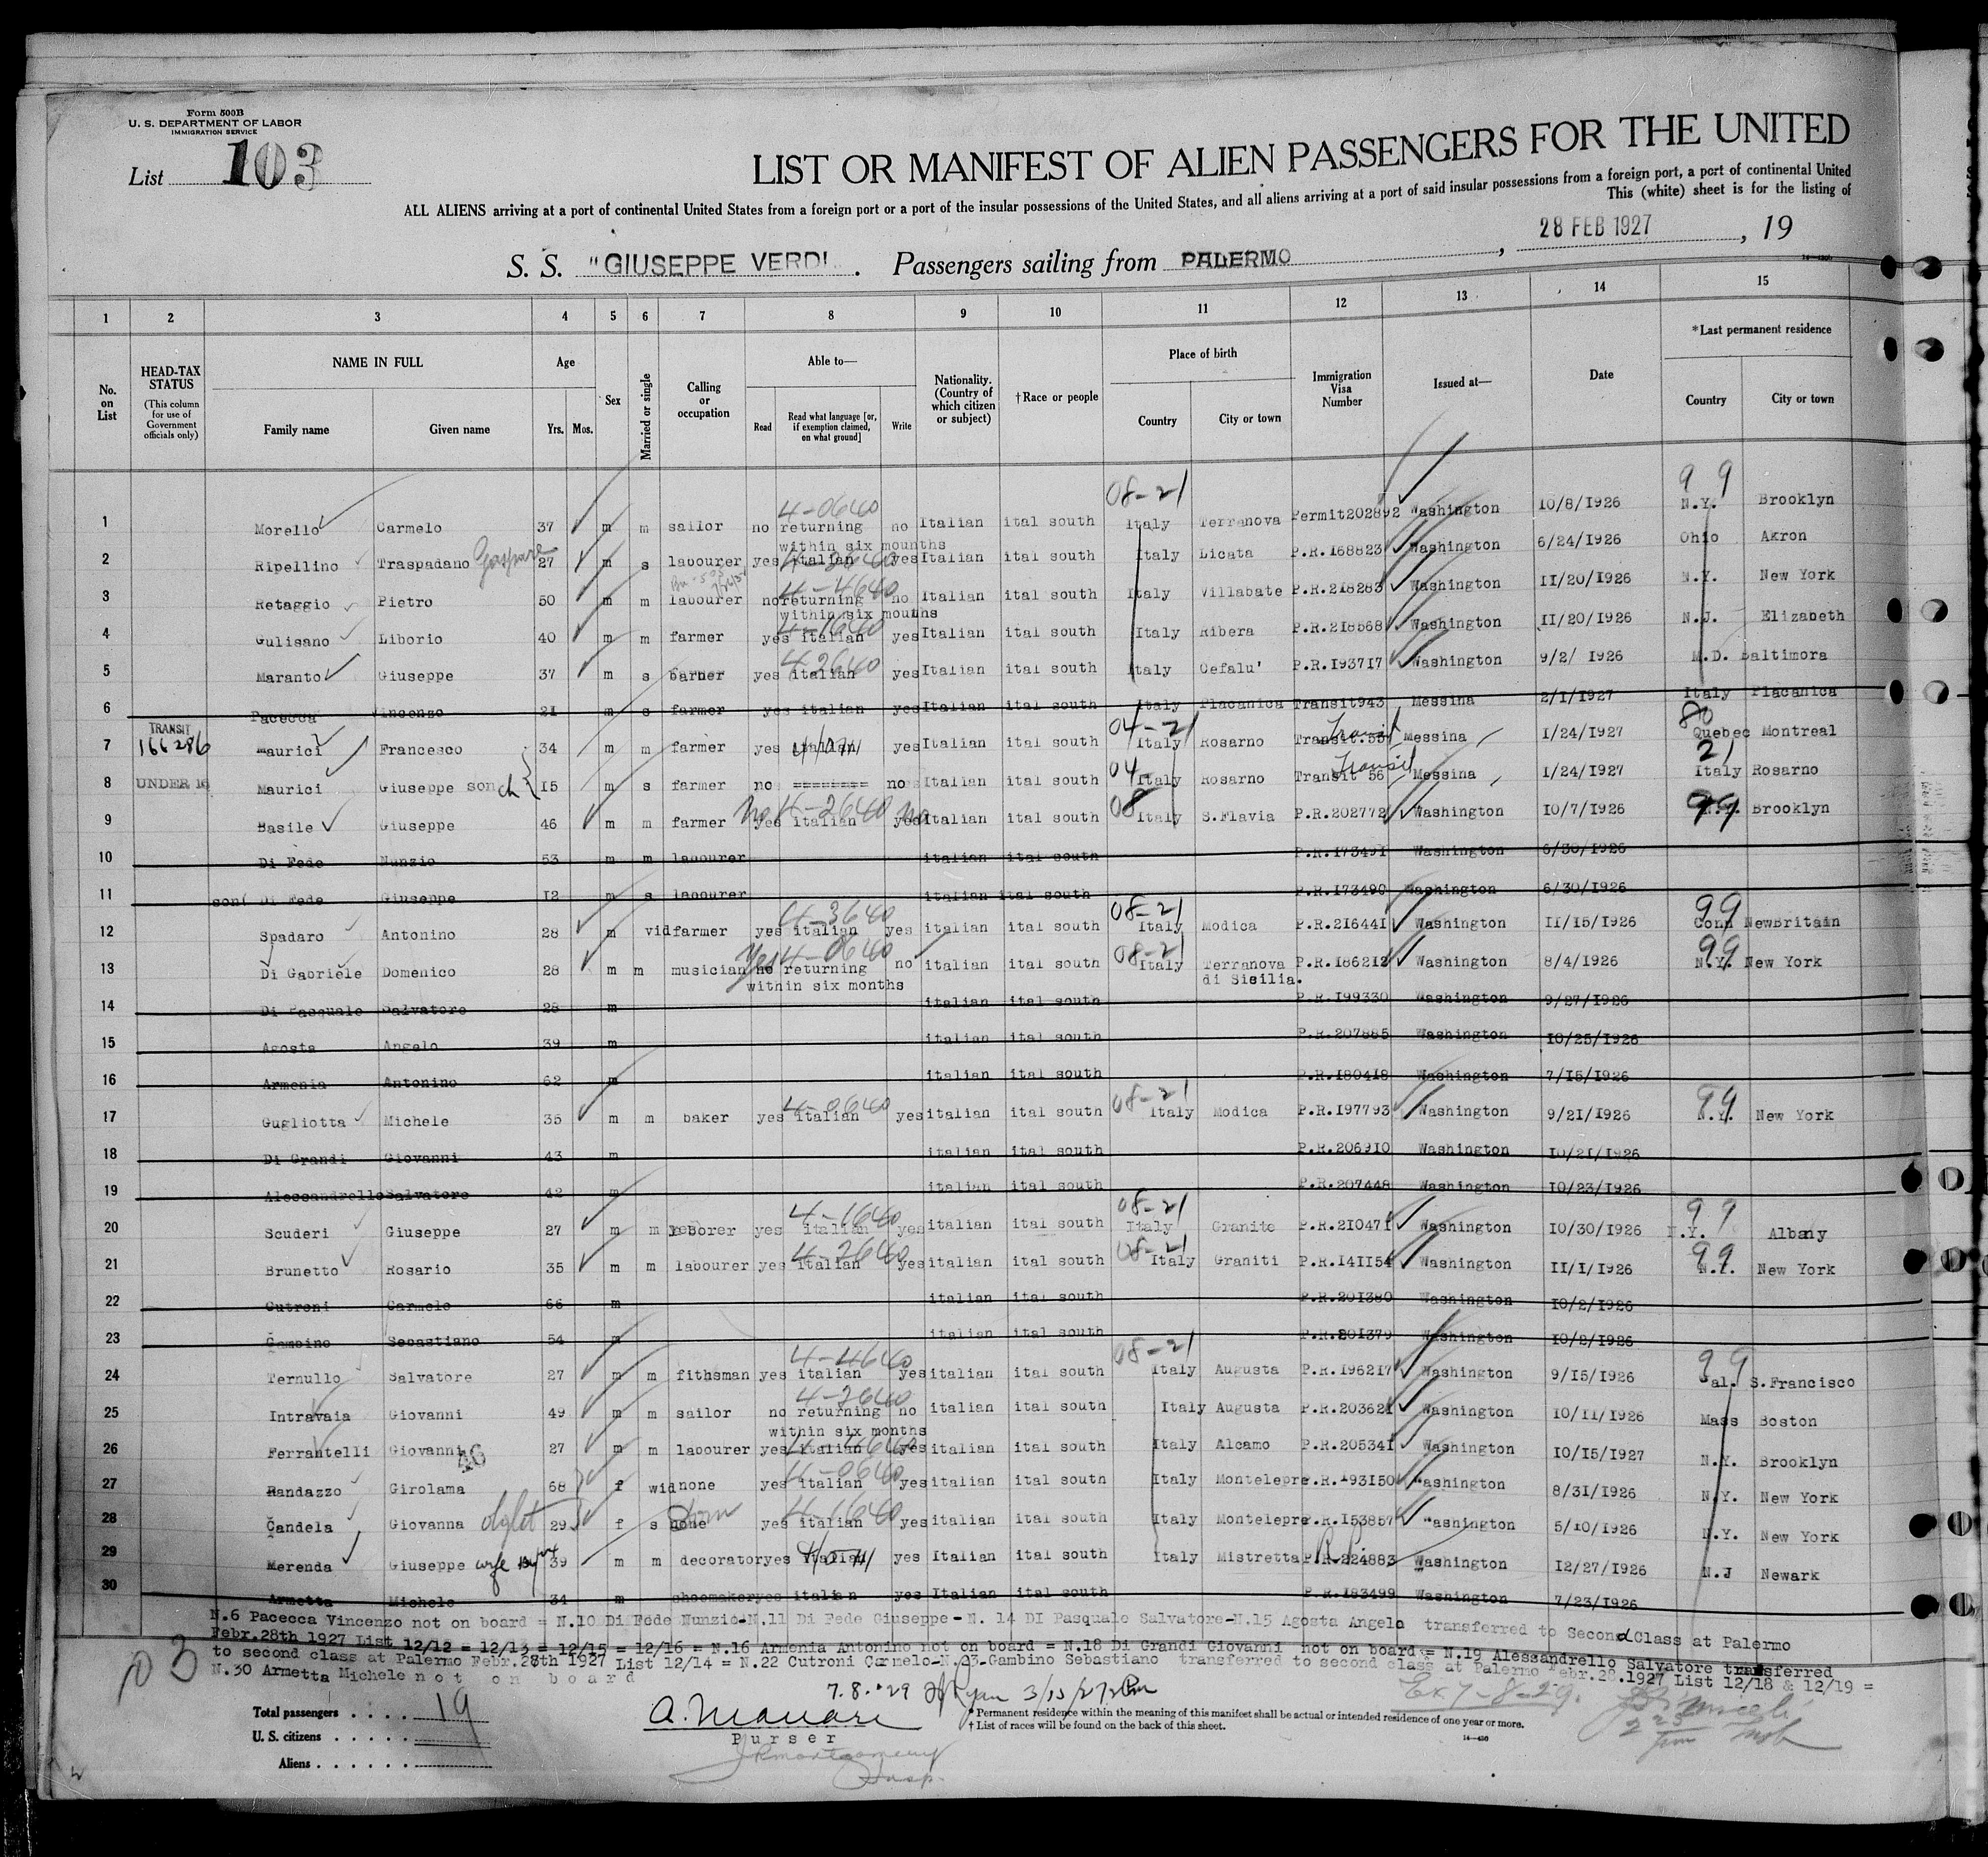 Form 500B
U. S. DEPARTMENT OF LABOR
IMMIGRATION SERVICE
List 103
LIST OR MANIFEST OF ALIEN PASSENGERS FOR THE UNITED
ALL ALIENS arriving at a port of continental United States from a foreign port or a port of the insular possessions of the United States, and all aliens arriving at a port of said insular possessions from a foreign port, a port of continental United
This (white) sheet is for the listing of
S. S. "GIUSEPPE VERDI. Passengers sailing from PALERMO, 28 FEB 1927, 19
1 2 3 4 5 6 7 8 9 10 11 12 13 14 15
No. on List
HEAD-TAX STATUS (This column for use of Government officials only)
NAME IN FULL Family name Given name
Age Yrs. Mos.
Sex
Married or single
Calling or occupation
Able to— Read Read what language [or, if exemption claimed, on what ground] Write
Nationality. (Country of which citizen or subject)
†Race or people
Place of birth Country City or town
Immigration Visa Number
Issued at—
Date
*Last permanent residence Country City or town
08-21 99
4-0640
1 Morello Carmelo 37 m m sailor no returning no Italian ital south Italy Terranova Permit202892 Washington 10/8/1926 N.Y. Brooklyn
within six mounths
2 Ripellino Traspadano Gaspare 27 m s labourer yes italian yes Italian ital south Italy Licata P.R.168823 Washington 6/24/1926 Ohio Akron
4-4640
3 Retaggio Pietro 50 m m labourer no returning no Italian ital south Italy Villabate P.R.218283 Washington 11/20/1926 N.Y. New York
within six mounths
4-1640
4 Gulisano Liborio 40 m m farmer yes italian yes Italian ital south Italy Ribera P.R.218568 Washington 11/20/1926 N.J. Elizabeth
4-2640
5 Maranto Giuseppe 37 m s barner yes italian yes Italian ital south Italy Cefalu' P.R.193717 Washington 9/2/ 1926 M.D. Baltimora
6 Pacecca Vincenzo 21 m s farmer yes italian yes Italian ital south Italy Placanica Transit943 Messina 2/1/1927 Italy Placanica
TRANSIT 04-21 Transit 80
7 166286 Maurici Francesco 34 m m farmer yes italian yes Italian ital south Italy Rosarno Transit.55 Messina 1/24/1927 Quebec Montreal
04 Transit 21
8 UNDER 16 Maurici Giuseppe son ch 15 m s farmer no ======== no Italian ital south Italy Rosarno Transit 56 Messina 1/24/1927 Italy Rosarno
No 4-2640 No 08 99
9 Basile Giuseppe 46 m m farmer yes italian yes Italian ital south Italy S.Flavia P.R.202772 Washington 10/7/1926 N.Y. Brooklyn
10 Di Fede Nunzio 53 m m labourer italian ital south P.R.173491 Washington 6/30/1926
11 son( Di Fede Giuseppe 12 m s labourer italian ital south P.R.173490 Washington 6/30/1926
4-3640 08-21 99
12 Spadaro Antonino 28 m vid farmer yes italian yes italian ital south Italy Modica P.R.216441 Washington 11/15/1926 Conn NewBritain
Yes 4-0640 08-21 99
13 Di Gabriele Domenico 28 m m musician no returning no italian ital south Italy Terranova P.R.186212 Washington 8/4/1926 N.Y. New York
within six months di Sicilia.
14 Di Pasquale Salvatore 28 m italian ital south P.R.199330 Washington 9/27/1926
15 Agosta Angelo 39 m italian ital south P.R.207885 Washington 10/25/1926
16 Armenia Antonino 62 m italian ital south P.R.180418 Washington 7/15/1926
4-0640 08-21 99
17 Gugliotta Michele 35 m m baker yes italian yes italian ital south Italy Modica P.R.197793 Washington 9/21/1926 N.Y. New York
18 Di Grandi Giovanni 43 m italian ital south P.R.206910 Washington 10/21/1926
19 Alessandrello Salvatore 42 m italian ital south P.R.207448 Washington 10/23/1926
4-1640 08-21 99
20 Scuderi Giuseppe 27 m m yes italian yes italian ital south Italy Granite P.R.210471 Washington 10/30/1926 N.Y. Albany
4-2640 08-21 99
21 Brunetto Rosario 35 m m labourer yes italian yes italian ital south Italy Graniti P.R.141154 Washington 11/1/1926 N.Y. New York
22 Cutroni Carmelo 66 m italian ital south P.R.201380 Washington 10/2/1926
23 Gambino Sebastiano 54 m italian ital south P.R.201379 Washington 10/2/1926
4-4640 08-21 99
24 Ternullo Salvatore 27 m m fithsman yes italian yes italian ital south Italy Augusta P.R.196217 Washington 9/15/1926 Cal. S.Francisco
4-2640
25 Intravaia Giovanni 49 m m sailor no returning no italian ital south Italy Augusta P.R.203621 Washington 10/11/1926 Mass Boston
within six months
26 Ferrantelli Giovanni 27 m m labourer yes italian yes italian ital south Italy Alcamo P.R.205341 Washington 10/15/1927 N.Y. Brooklyn
46 4-0640
27 Randazzo Girolama 68 f wid none yes italian yes italian ital south Italy Montelepre P.R.193150 Washington 8/31/1926 N.Y. New York
4-1640
28 Candela Giovanna 29 f s none yes italian yes italian ital south Italy Montelepre P.R.153857 Washington 5/10/1926 N.Y. New York
29 Merenda Giuseppe wife 39 m m decorator yes italian yes Italian ital south Italy Mistretta P.R.224883 Washington 12/27/1926 N.J Newark
30 Armetta Michele 34 m shoemaker yes italian yes Italian ital south P.R.183499 Washington 7/23/1926
N.6 Pacecca Vincenzo not on board = N.10 Di Fede Nunzio-N.11 Di Fede Giuseppe - N. 14 DI Pasquale Salvatore-N.15 Agosta Angelo transferred to Second Class at Palermo
Febr.28th 1927 List 12/12 = 12/13 = 12/15 = 12/16 = N.16 Armenia Antonino not on board = N.18 Di Grandi Giovanni not on board = N.19 Alessandrello Salvatore transferred
to second class at Palermo Febr.28th 1927 List 12/14 = N.22 Cutroni Carmelo-N.23-Gambino Sebastiano transferred to second class at Palermo Febr.28.1927 List 12/18 & 12/19 =
N.30 Armetta Michele not on board
7.8.'29 Ryan 3/15/27 2 Pm
Ex 7-8-29.
Total passengers . . . . 19
U. S. citizens . . . . .
Aliens . . . . . .
Purser
* Permanent residence within the meaning of this manifest shall be actual or intended residence of one year or more.
† List of races will be found on the back of this sheet.
JRMontgomery
Insp.